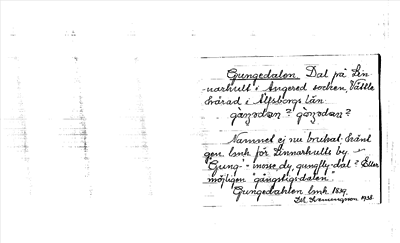 Gungedalen. Dal på Len-
narhult i Angered socken, Vättle
härad i Älfsborgs län.
Namnet ej nu brukat, hänt
gen lmk för Linnarhults by
"Gung" = mosse, dy, gungfly-dal? Eller
möjligen "gångstigs-dalen"
Gungedahlen lmk 1829.
1938.